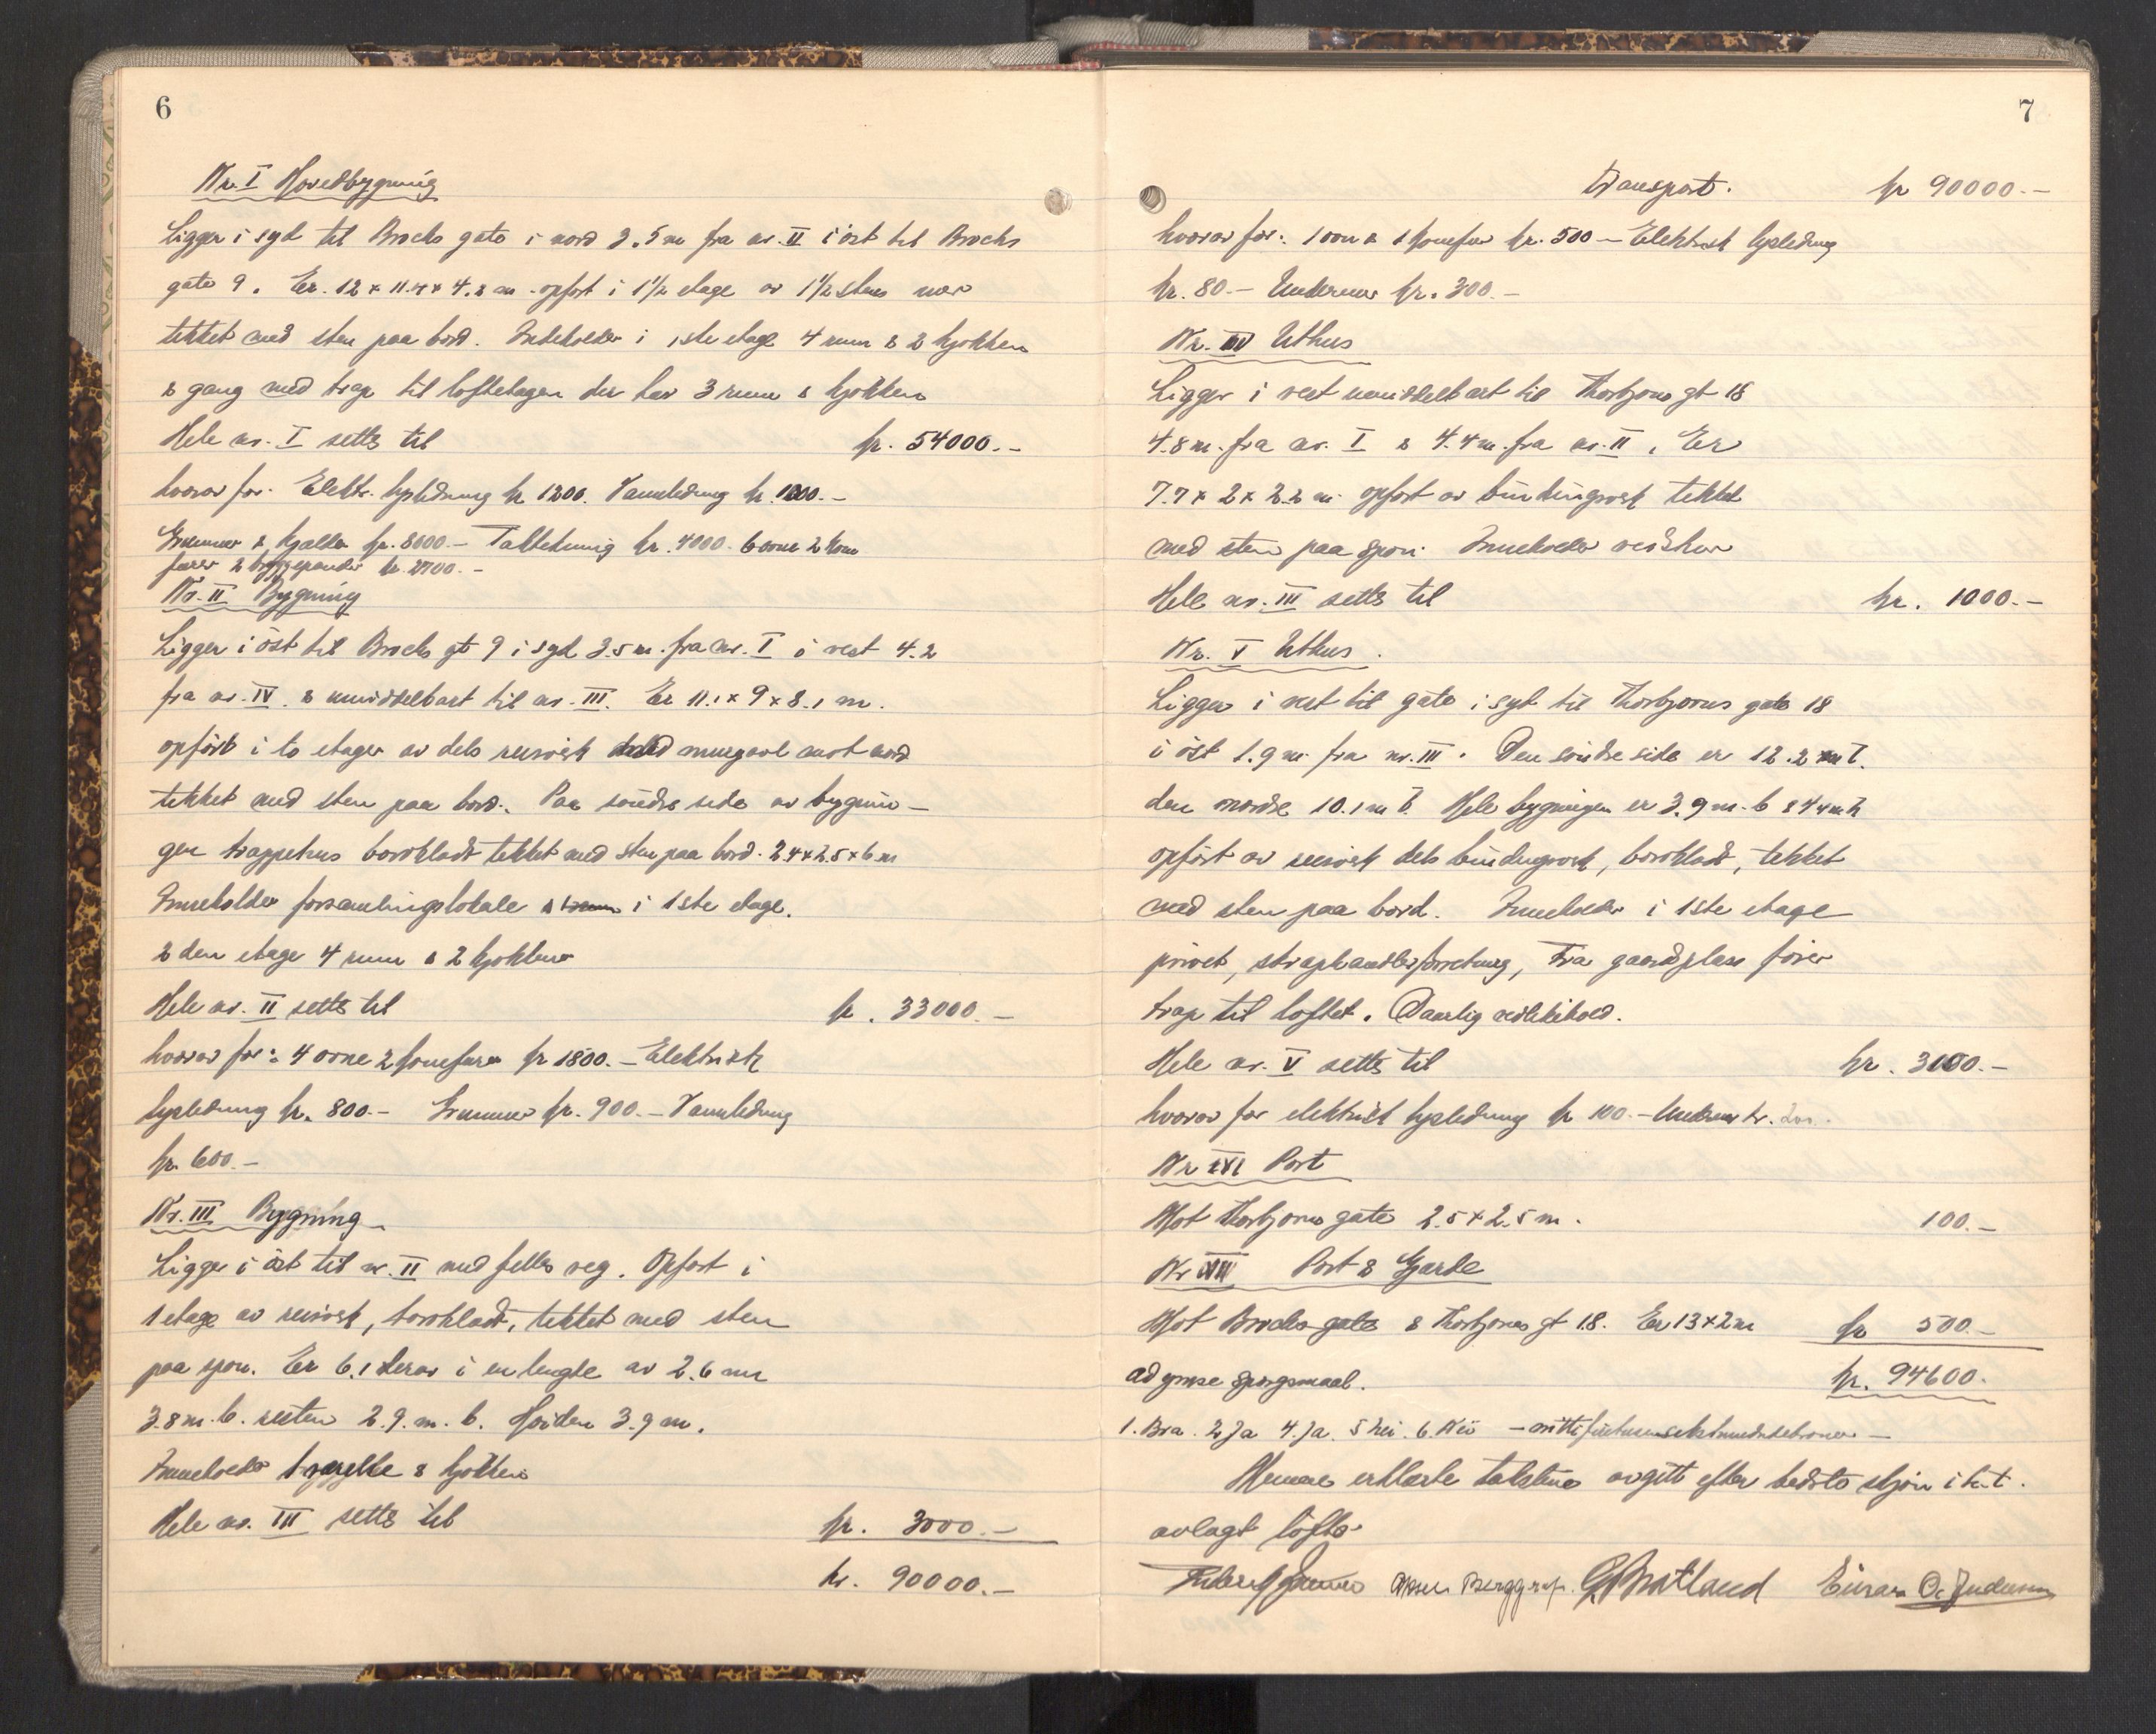 6
Nr. I Hovedbygning
Ligger i syd til Brochs gate i nord 3.5 m fra nr. II i öst til Brochs
gate 9. Er 12 x 11.4 x 4.2 m opfört i 1 1/2 etage av 1 1/2 stens mur
tekket med sten paa bord. Indeholder i 1ste etage 4 rum & 2 kjökken
& gang med trap til loftetagen der har 3 rum & kjökken
Hele nr. I settes til kr. 54000.-
hvorav for: Elektr. lysledning kr 1200. Vannledning kr. 1000.-
Grunmur & kjelder kr. 8000.- Taktekning kr. 4000. 6 ovne 2 kom
furer 2 bryggepander kr. 2700.-
Nr. II Bygning
Ligger i öst til Brochs gt 9 i syd 3.5 m. fra nr. I i vest 4.2
fra nr. IV. & umiddelbart til nr. III. Er 11.1 x 9 x 8.1 m.
opfört i to etager av dels reisverk med murgavl mot nord
tekket med sten paa bord. Paa söndre side av bygnin-
gen trappehus bordkladt tekket med sten paa bord. 2.4 x 2.5 x 6 m
Inneholder forsamlingslokale i 1ste etage.
2 den etage 4 rum & 2 kjökken
Hele nr. II settes til kr. 33000.-
hvorav for: 4 ovne 2 komfurer kr 1800.- Elektrisk
lysledning kr. 800.- Grunmur kr. 900.- Vannledning
kr. 600.-
Nr. III Bygning
Ligger i öst til nr. II med felles veg. Opfört i
1 etage av reisverk, bordkladt, tekket med sten
paa spon. Er 6.1 herav i en lengde av 2.6 m
3.8 m. b. resten 2.9. m. b. Höiden 3.9 m.
Inneholder 1 værelse & kjökken
Hele nr. III settes til kr. 3000.-
kr. 90000.-
7
Transport. kr 90000.-
hvorav for: 1 ovn & 1 komfur kr. 500.- Elektrisk lysledning
kr. 80.- Undermur kr. 300.-
Nr. IV Uthus
Ligger i vest umiddelbart til Thorbjørns gt 18
4.8 m. fra nr. I & 4.4 m. fra nr. II. Er
7.7 x 2 x 2.2 m. opfört av bindingverk tekket
med sten paa spon. Inneholder vedskur
Hele nr. III settes til kr. 1000.-
Nr. V Uthus.
Ligger i vest til gate i syd til Thorbjørns gate 18
i öst 1.9 m. fra nr. III. Den söndre side er 12.2 m l.
den nordre 10.1 m l. Hele bygningen er 3.9 m. b & 4.4 m h
opfört av reisverk dels bindingverk, bordkladt, tekket
med sten paa bord. Inneholder i 1ste etage
privet, skraphandlerforretning, fra gaardsplass förer
trap til loftet. Daarlig vedlikehold.
Hele nr. V settes til kr. 3100.-
hvorav for elektrisk lysledning kr 100.- Undermur kr. 200.
Nr VI Port
Mot Thorbjørns gate 2.5 x 2.5 m. 100.-
Nr VII Port & Gjerde
Mot Brochs gate & Thorbjørns gt 18. Er 13 x 2 m kr 500.-
ad gruse spörgsmaal. kr. 94600.-
1. Bra. 2 Ja 4. Ja. 5 Nei. 6. Nei
Mennene erklærte takstene avgitt efter bedste skjön i h. t.
avlagt löfte.
Berggraf. G. Bratland Einar O. Gudesen